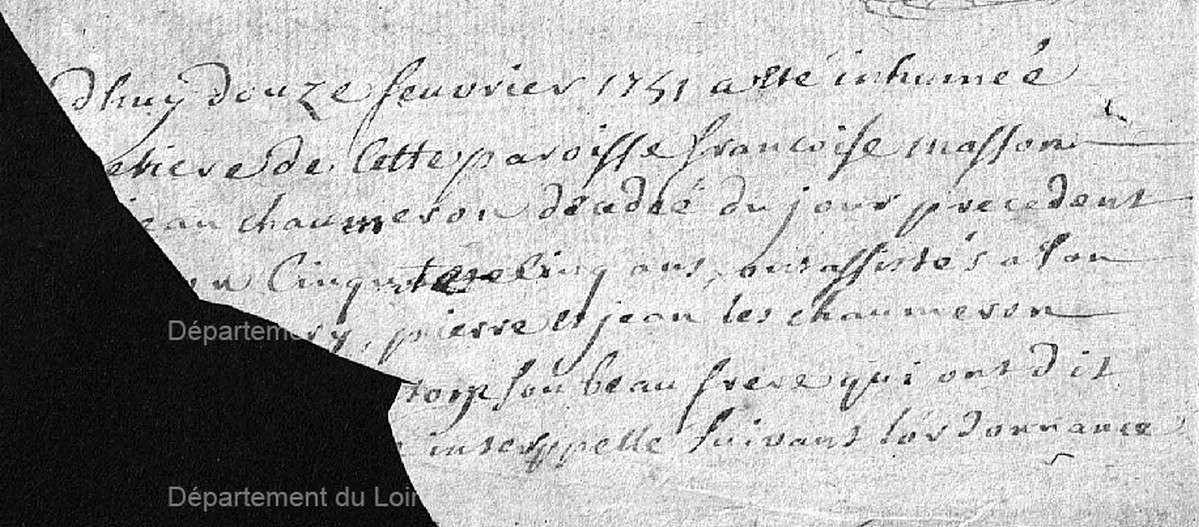 dhuy douze feuvrier 1751 a etté inhumeé
etiere de Cette paroisse francoise masson
jean chaumeron décédeé du jour precedent
Cinqute Cinq ans, ont assistés a son
ry, pierre et jean les chaumeron
son beau frere qui ont dit
interppelle suivant l'ordonnance
Départem
Département du Loir